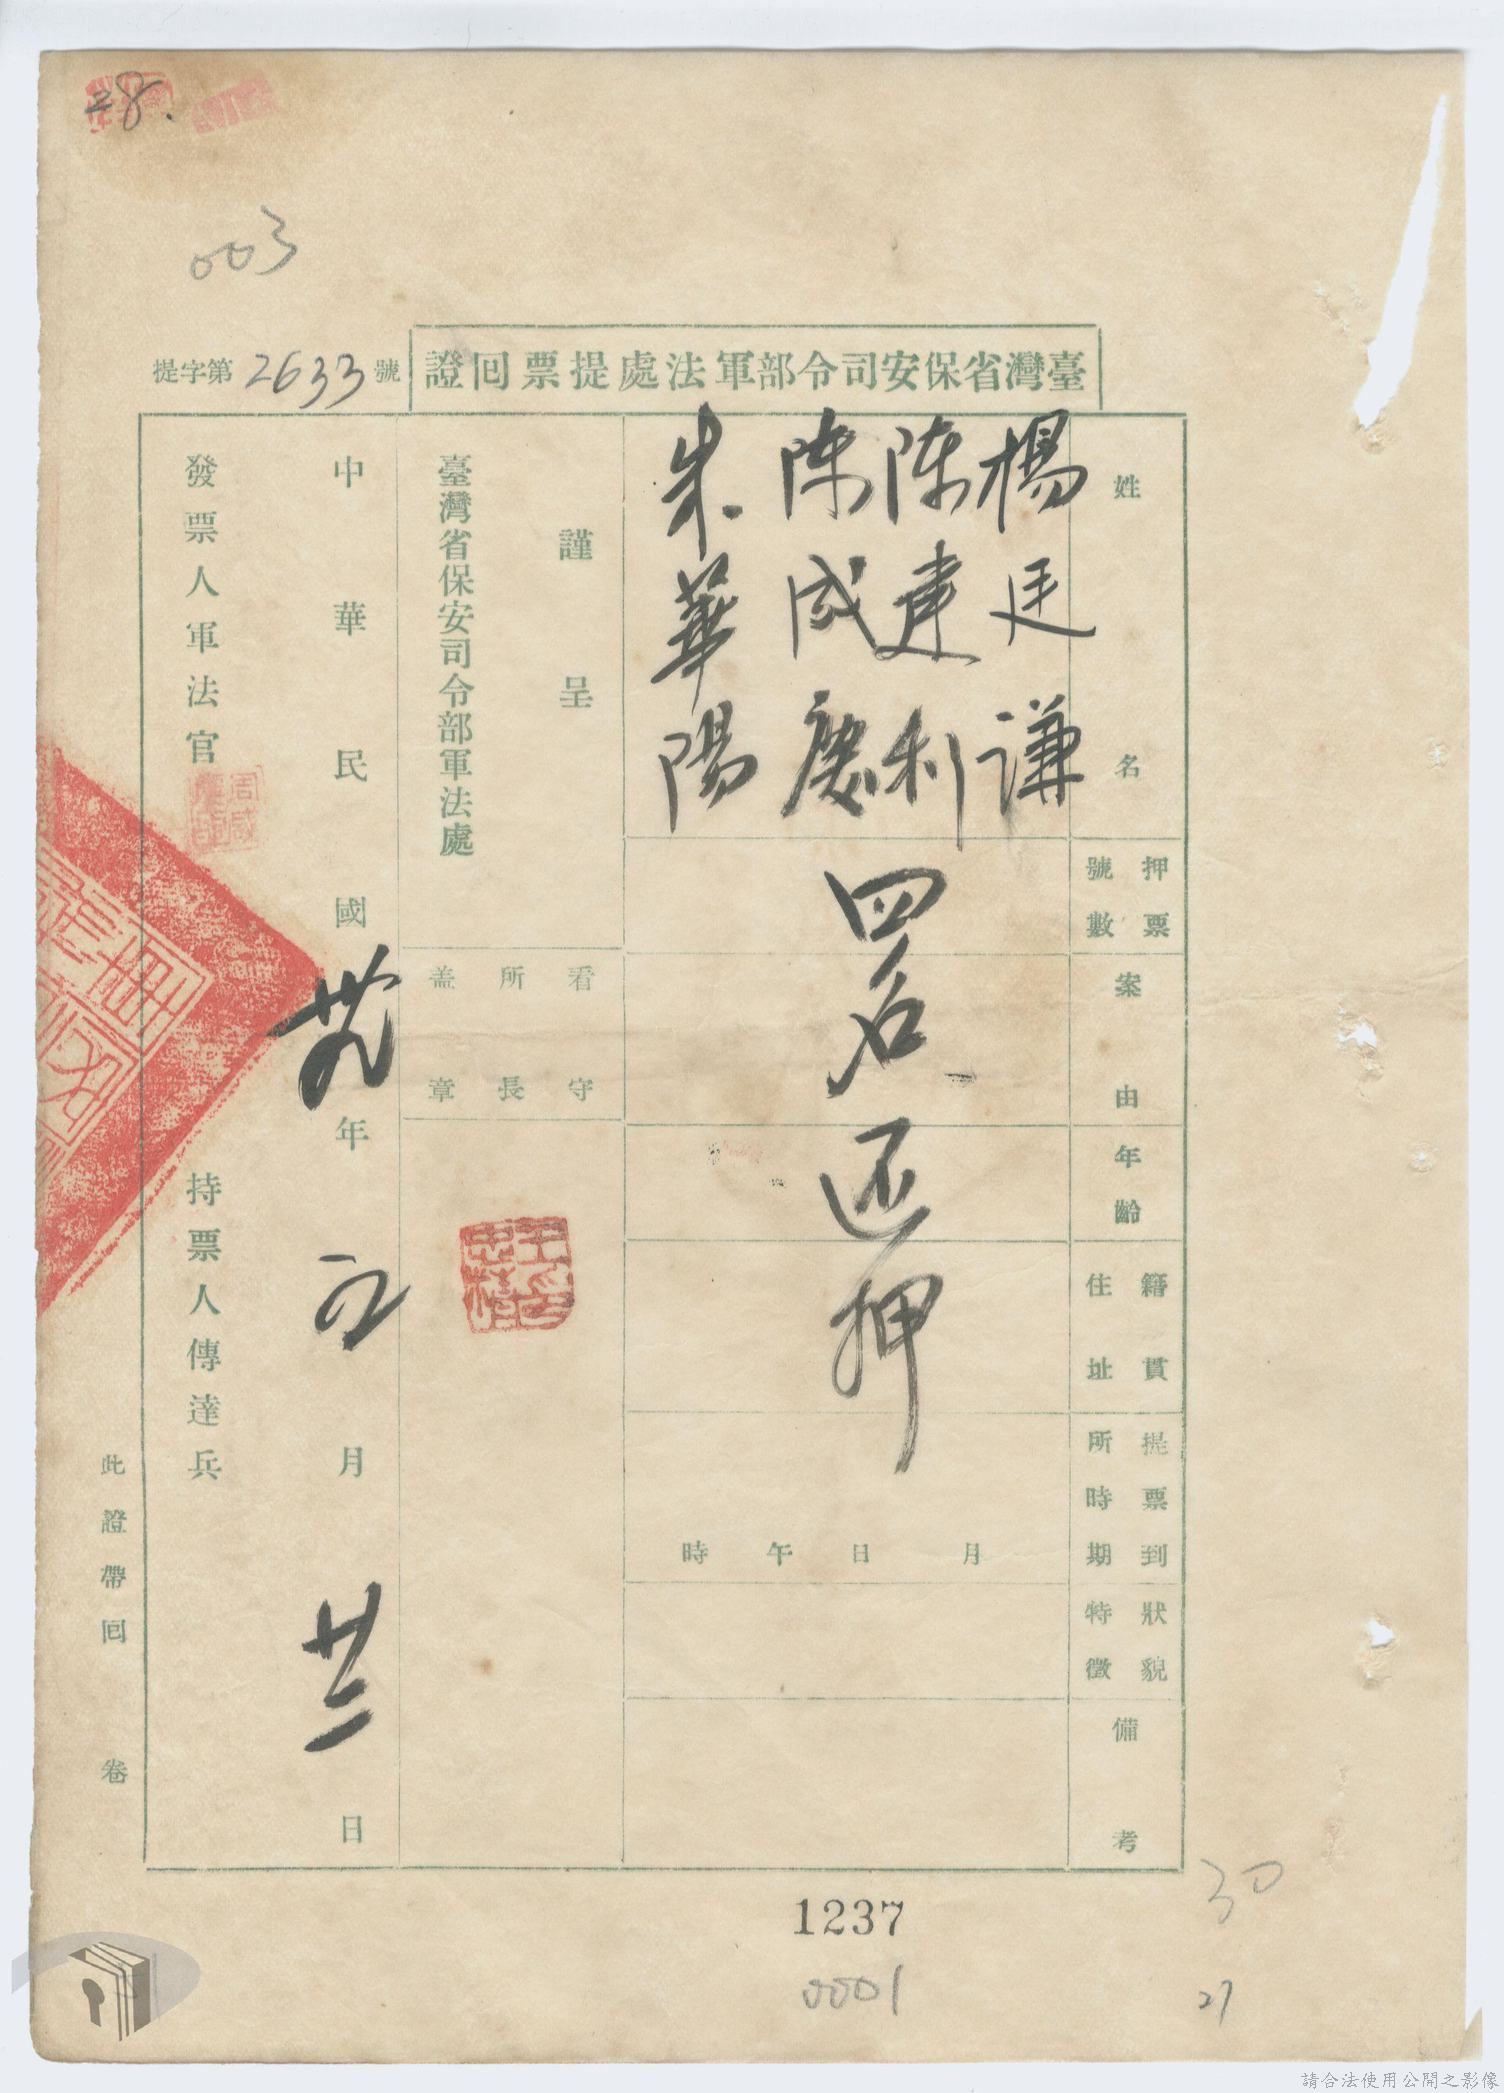 003
臺灣省保安司令部軍法處提票囘證
提字第2633號
姓名
楊廷謙
陳建利
陳成慶
朱華陽
押票號數
四名还押
案由
年齡
籍貫住址
提票到所時期
月日午時
狀貌特徵
備考
謹呈
臺灣省保安司令部軍法處
看守所長蓋章
王忠楷印
中華民國卅九年二月廿二日
發票人軍法官
持票人傳達兵
此證帶囘卷
1237
0001
30
27
請合法使用公開之影像